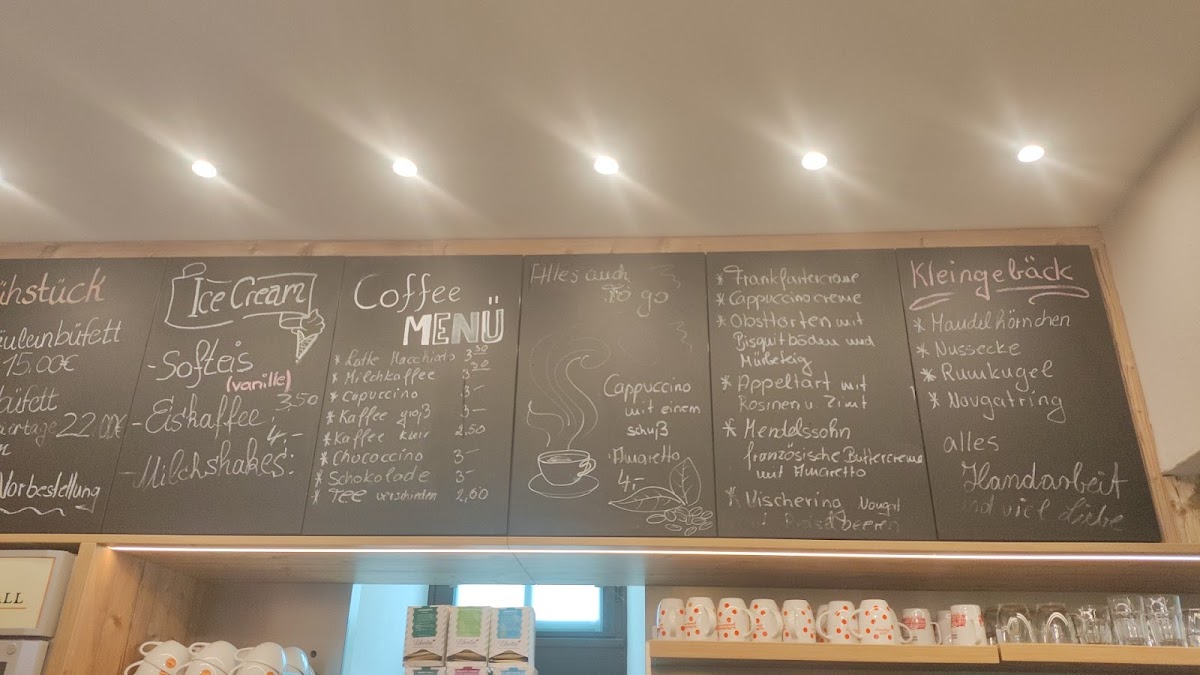 ühstück
äuleinbüfett
15.00€
büfett
22.00€
Vorbestellung
Ice Cream
-Softeis
(vanille)
-Eiskaffee 3,50
4,-
-Milchshakes:
Coffee
MENÜ
* Latte Macchiato 3,50
* Milchkaffee
* Capuccino 3-
* Kaffee groß 3-
* Kaffee klein 2,50
* Chococcino 3-
* Schokolade 3-
* Tee verschieden 2,60
Alles auch
To go
Cappuccino
mit einem
schuß
Amaretto
4,-
* Frankfurtercreme
* Cappuccinocreme
* Obsttorten mit
Bisquitböden und
Mürbeteig
* Appeltart mit
Rosinen u. Zimt
* Mendelssohn
französische Buttercreme
mit Amaretto
* Vischering Nougat
Preiselbeeren
Kleingebäck
* Mandelhörnchen
* Nussecke
* Rumkugel
* Nougatring
alles
Handarbeit
und viel Liebe
ALL